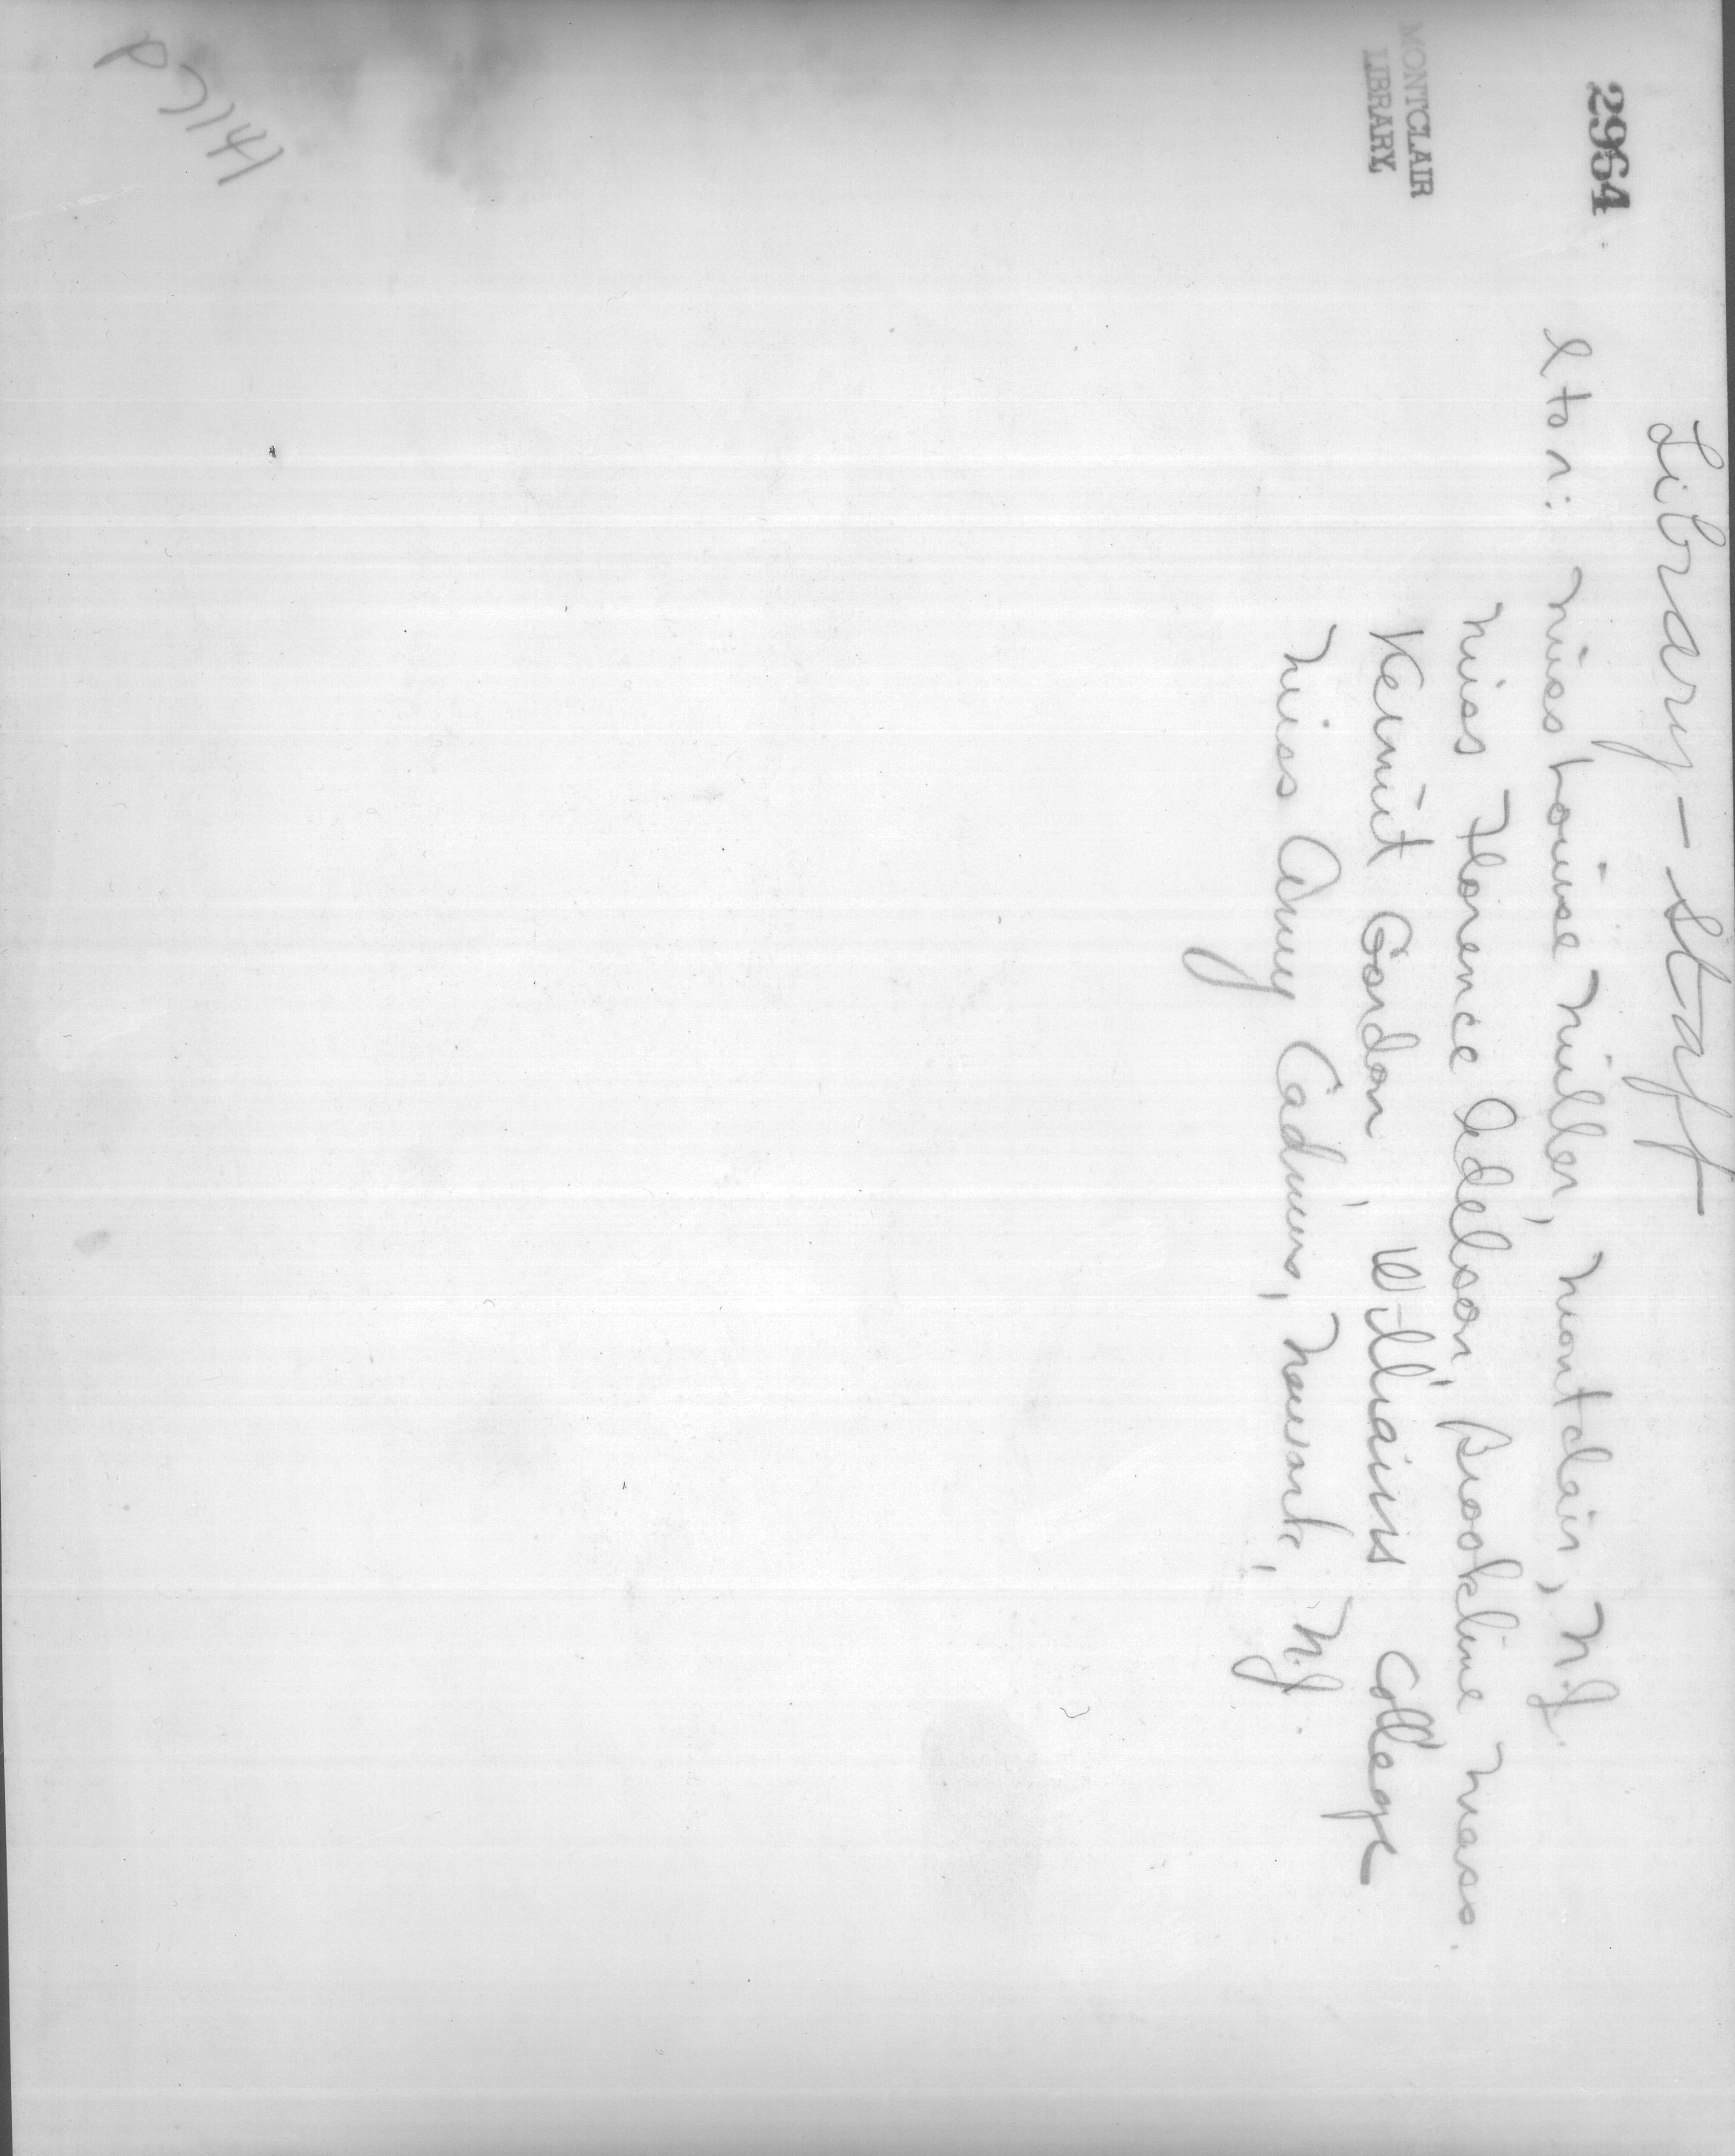 Library - Staff
2964
l to r: Miss Louise Miller, Montclair, N.J.
Miss Florence Adelson, Brookline Mass.
MONTCLAIR
LIBRARY
Kermit Gordon, Williams College
Miss Amy Cadmus, Newark, N.J.
P7141